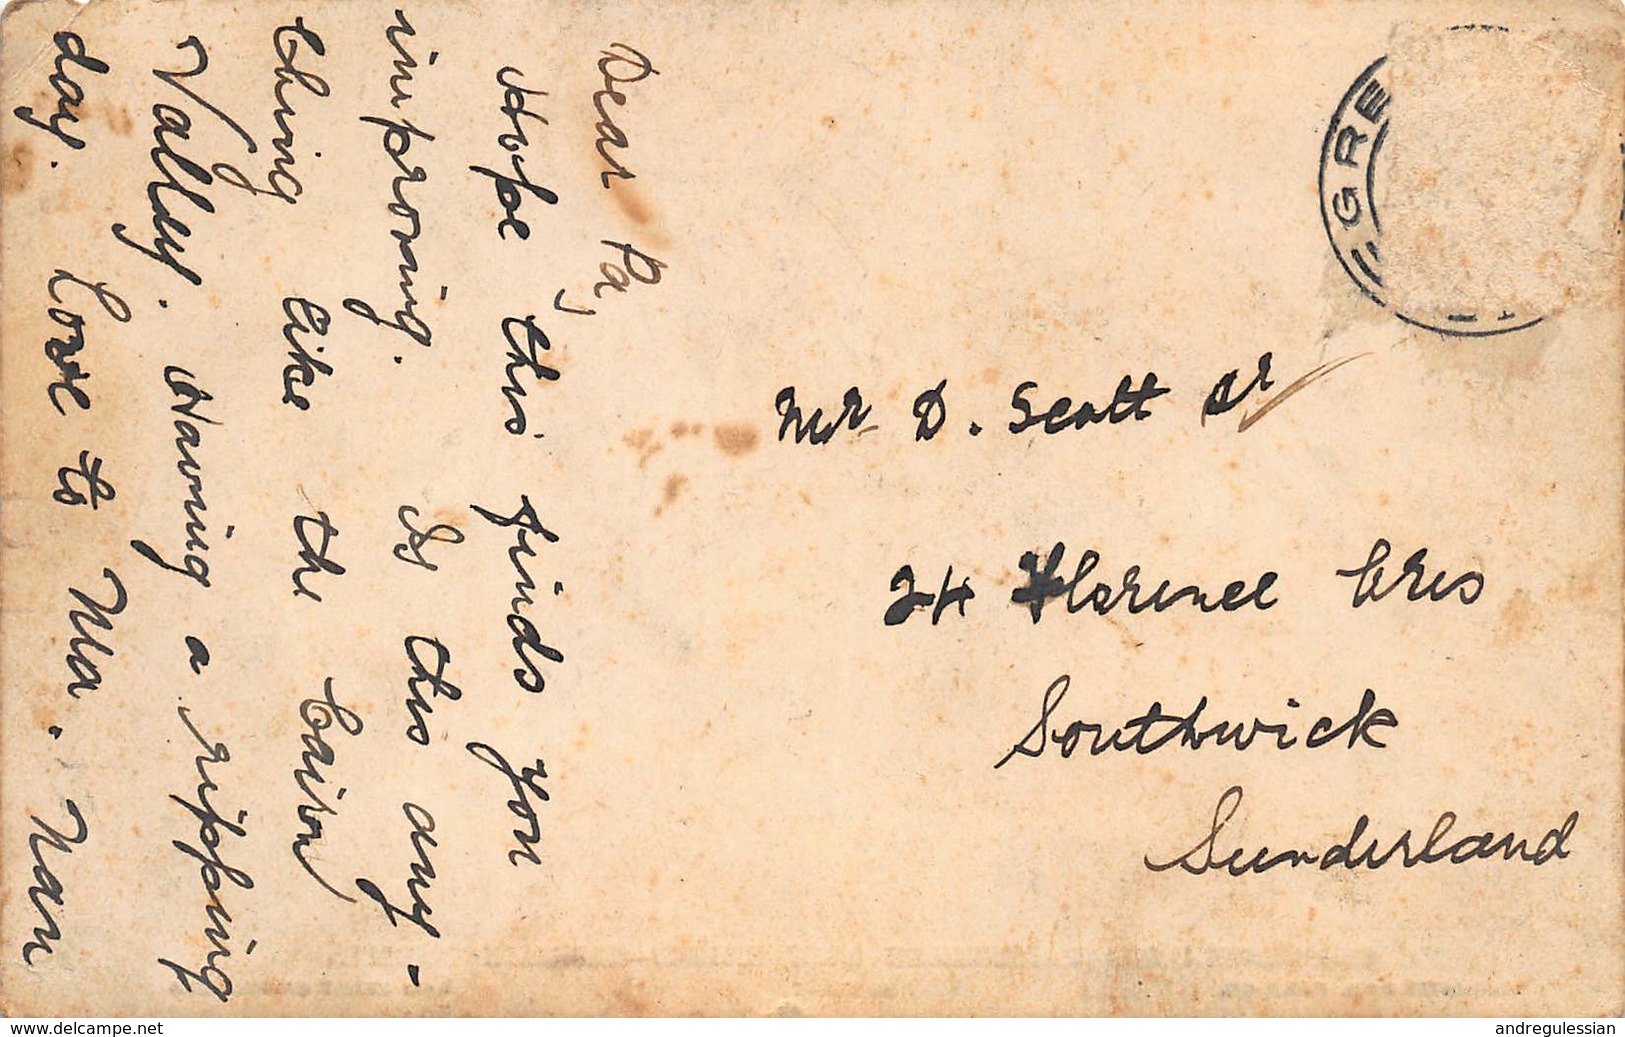 Dear Pa,
Hope this finds you
improving. Is this any-
thing like the Cairn
Valley. Having a ripping
day. Love to Ma. Nan
EGRE
Mr D. Scott Sr
24 Florence Cres
Southwick
Sunderland
www.delcampe.net
andregulessian